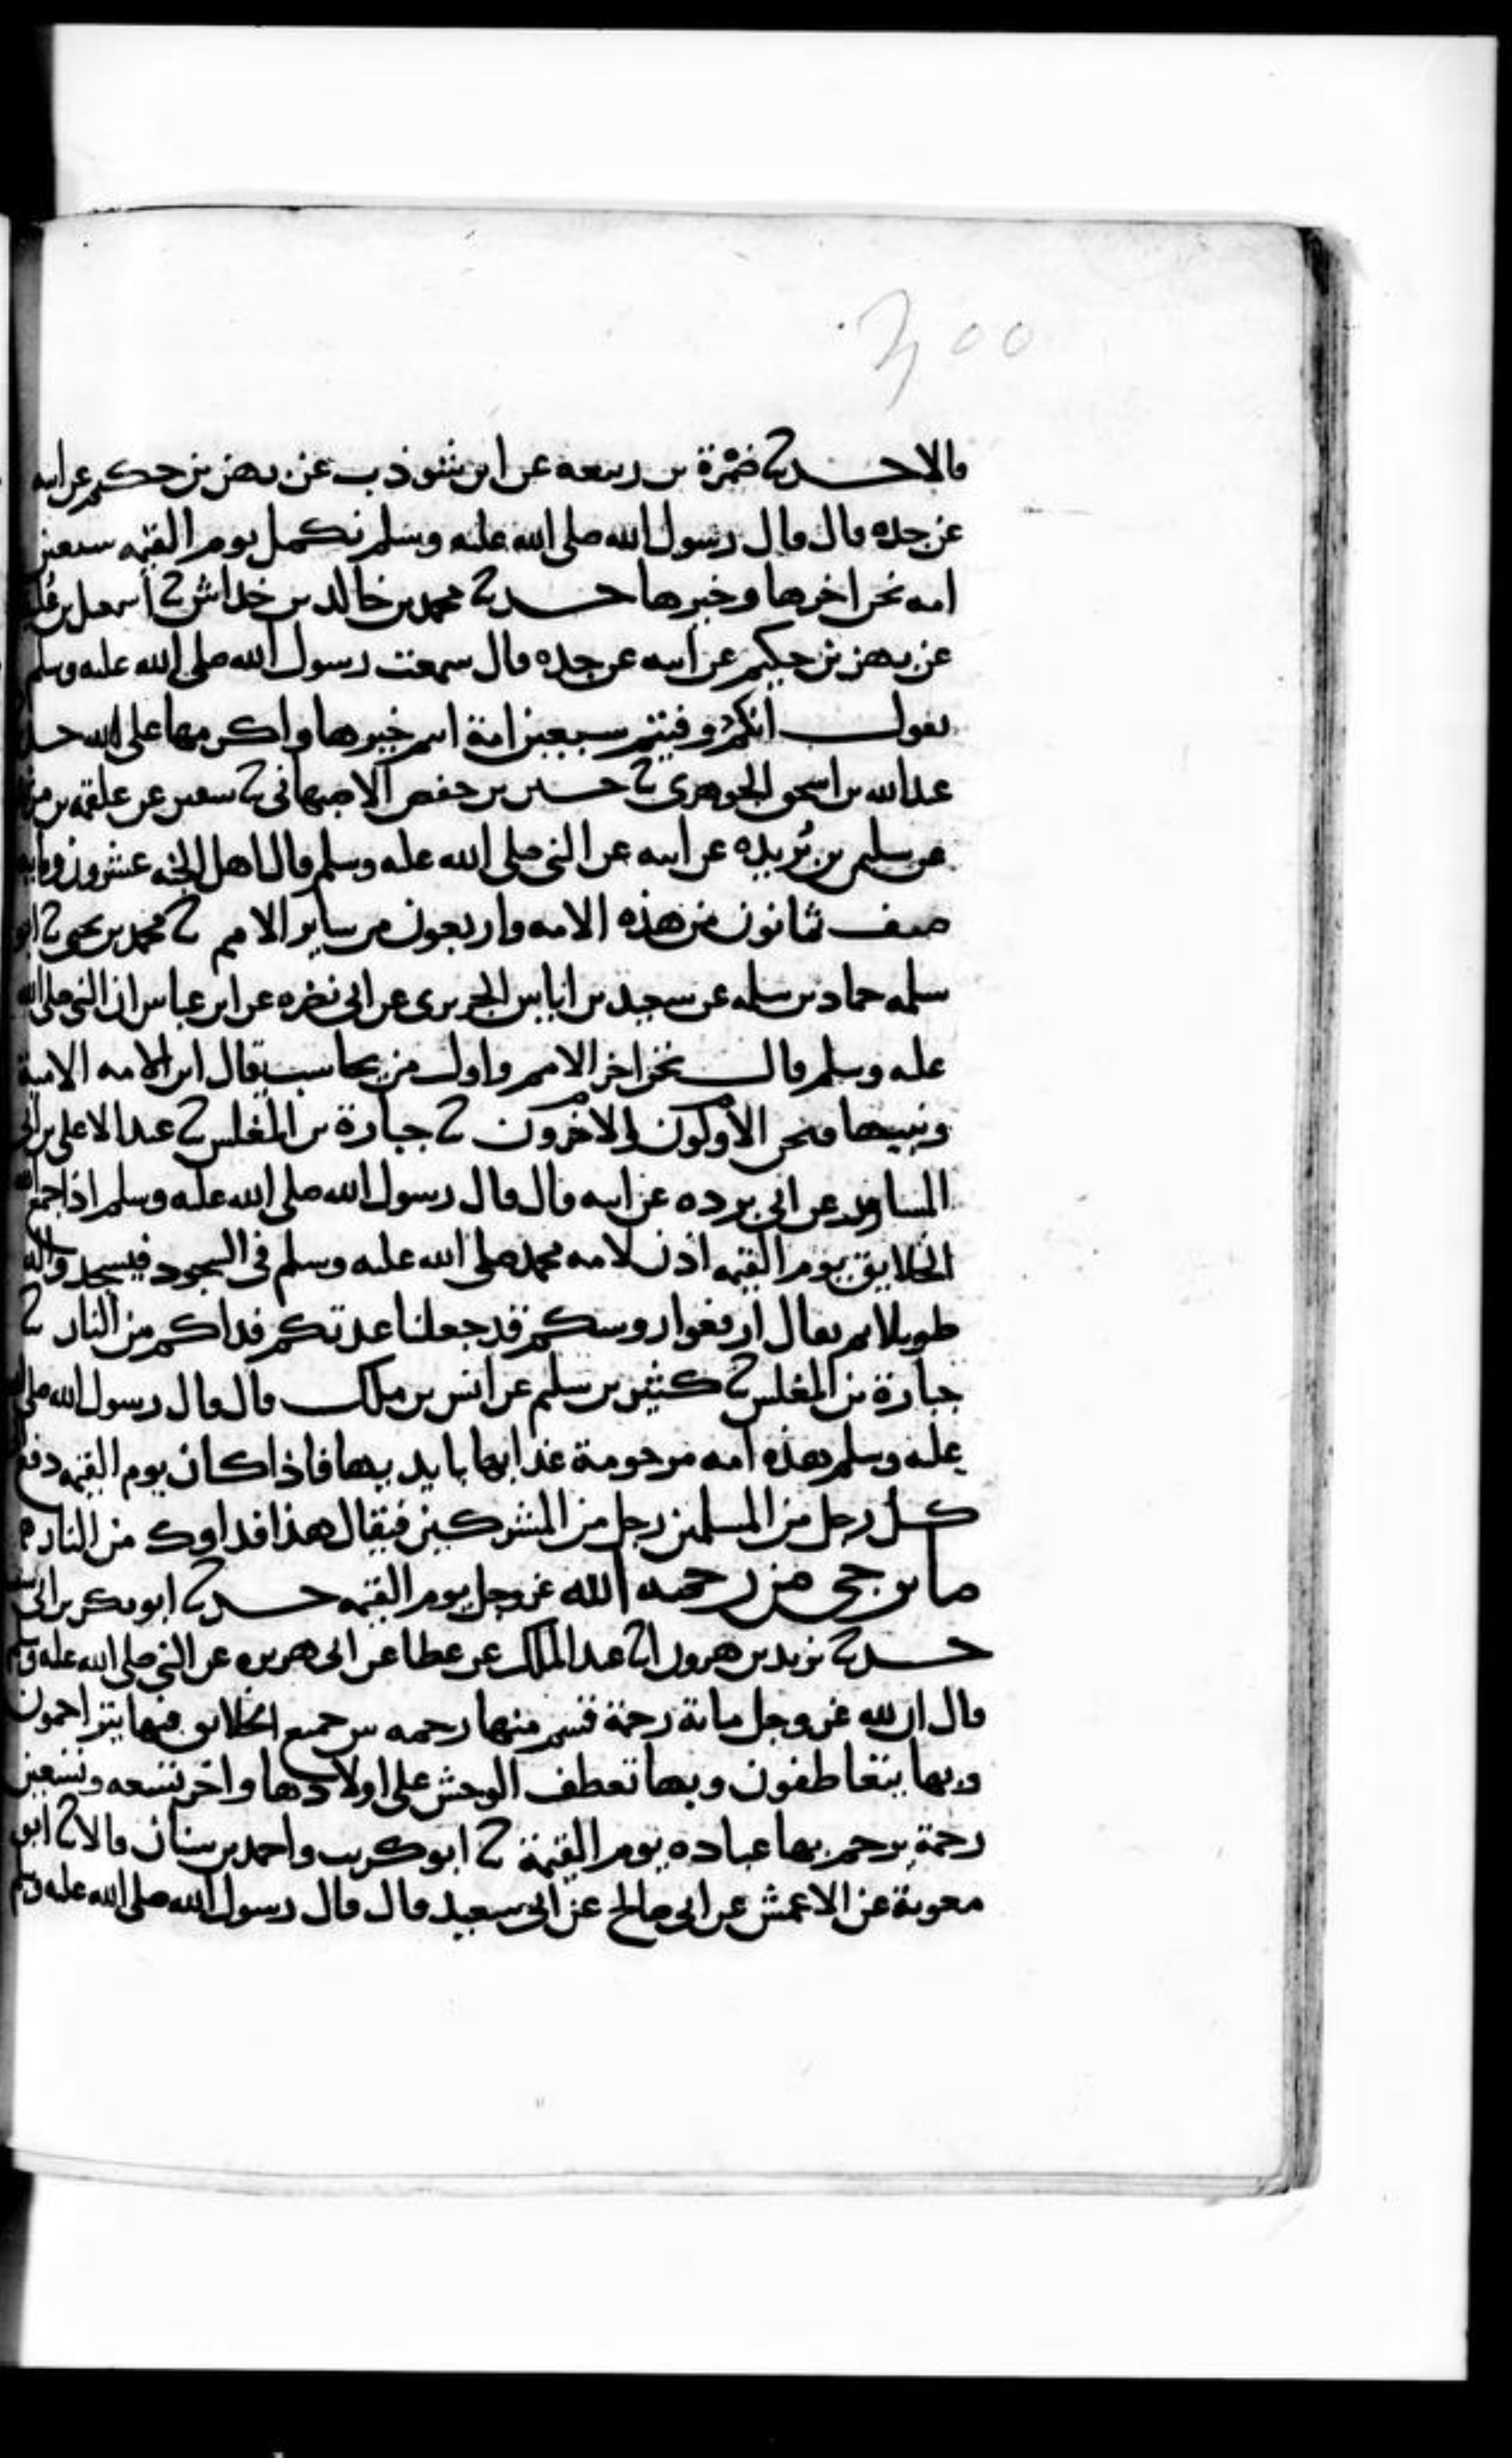 300
قالا حدثنا ضمرة بن ربيعه عن ابن شوذب عن بهز بن حكيم عن ابيه
عن جده قال قال رسول الله صلى الله عليه وسلم نكمل يوم القيمه سبعين
امه نحن اخرها وخيرها حدثنا محمد بن خالد بن خداش ثنا اسمعيل بن علية
عن بهز بن حكيم عن ابيه عن جده قال سمعت رسول الله صلى الله عليه وسلم
يقول انكم وفيتم سبعين امة انتم خيرها واكرمها على الله
عبدالله بن اسحق الجوهري ثنا حسين بن حفص الاصبهاني ثنا سفين عن علقمه بن مرثد
عن سليمن بن بُريده عن ابيه عن النبي صلى الله عليه وسلم قال اهل الجنه عشرون ومايه
صف ثمانون من هذه الامه واربعون من ساير الامم ثنا محمد بن يحيى ثنا ابو
سلمه حماد بن سلمه عن سعيد بن اياس الجريري عن ابي نضره عن ابن عباس ان النبي صلى الله
عليه وسلم قال نحن اخر الامم واول من يحاسب يقال اين الامه الامية
ونبيها فنحن الاولون الاخرون ثنا جبارة بن المغلس ثنا عبدالاعلى بن ابي
المساور عن ابي برده عن ابيه قال قال رسول الله صلى الله عليه وسلم اذا جمع الله
الخلايق يوم القيمه اذن لامه محمد صلى الله عليه وسلم في السجود فيسجدوا له
طويلا ثم يقال ارفعوا روسكم قد جعلنا عدتكم فداكم من النار ثنا
جبارة بن المغلس ثنا كثير بن سليم عن انس بن ملك قال قال رسول الله صلى الله
عليه وسلم هذه امه مرحومة عذابها بايديها فاذا كان يوم القيمه دفع
كل رجل من المسلمين رجل من المشركين فيقال هذا فداوك من النار
ما يرجى من رحمه الله عز وجل يوم القيمه حدثنا ابو بكر بن ابي
حدثنا يزيد بن هرون انا عبد الملك عن عطا عن ابي هريره عن النبي صلى الله عليه وسلم
قال ان لله عز وجل ماية رحمة قسم منها رحمه بين جميع الخلايق فبها يتراحمون
وبها يتعاطفون وبها تعطف الوحش على اولادها واخر تسعه وتسعين
رحمة يرحم بها عباده يوم القيمة ثنا ابو كريب واحمد بن سنان قالا ثنا ابو
معوية عن الاعمش عن ابي صالح عن ابي سعيد قال قال رسول الله صلى الله عليه وسلم